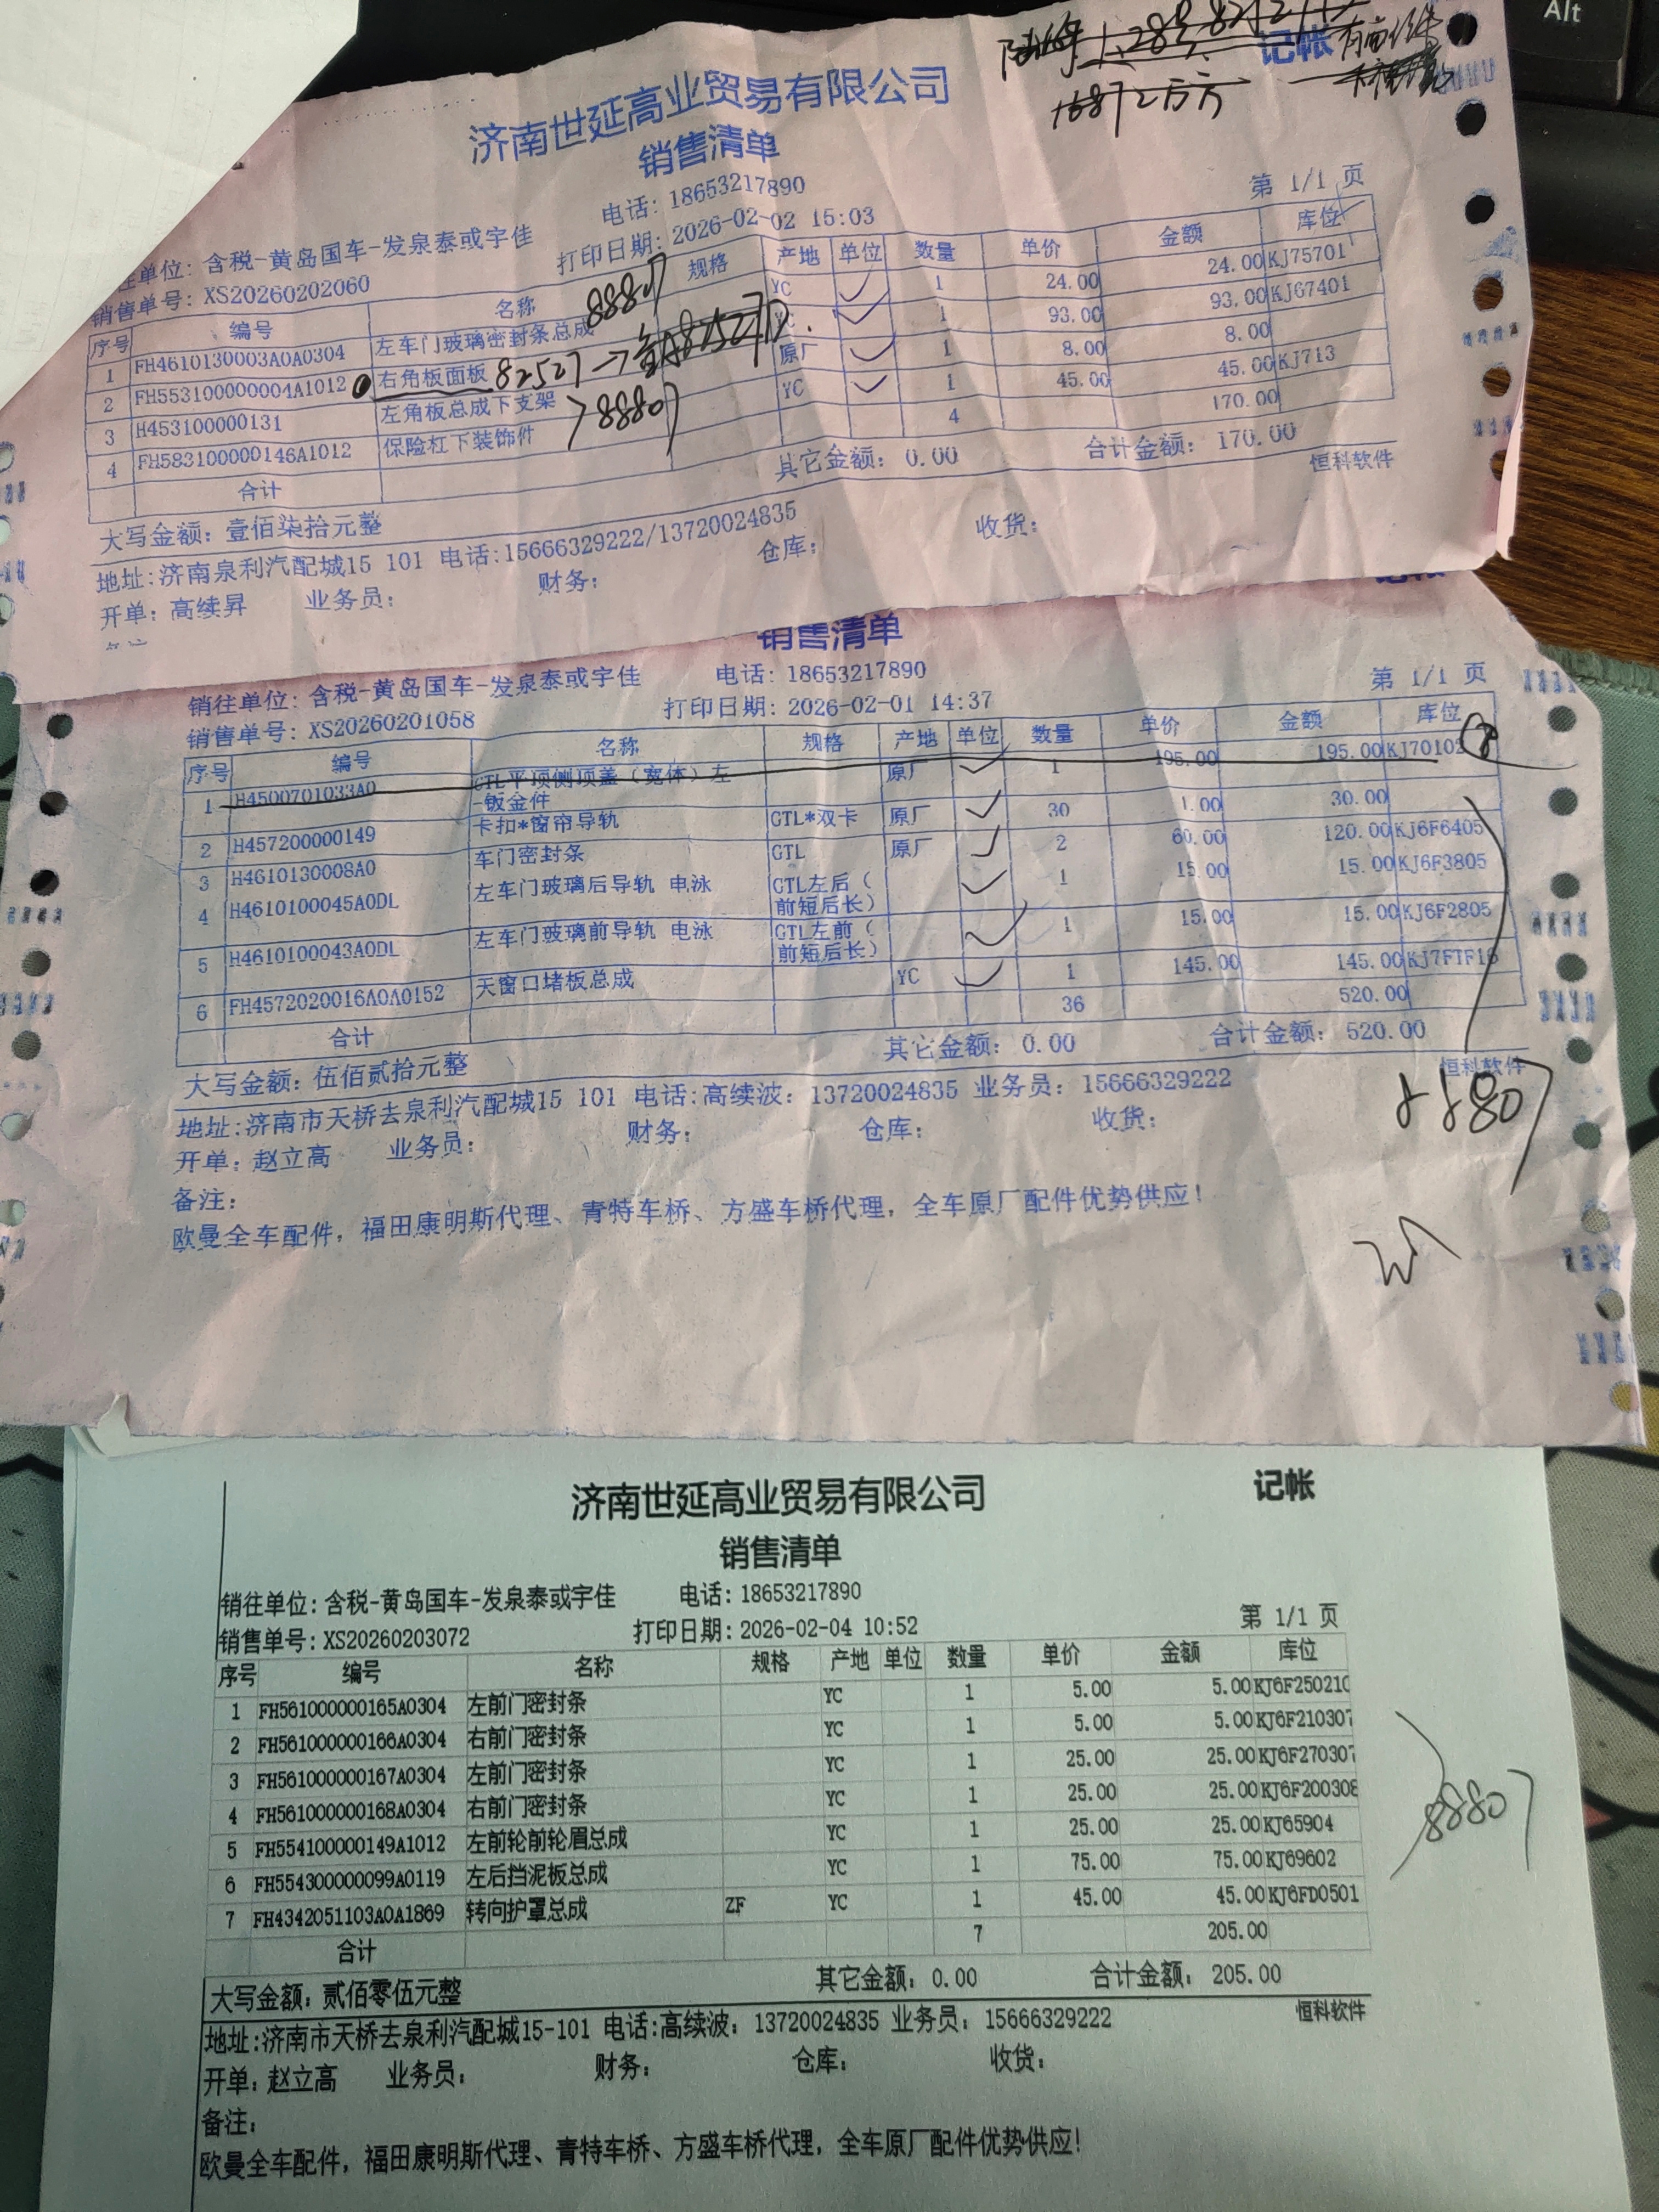 Alt
记帐
济南世延高业贸易有限公司
销售清单
电话: 18653217890
第 1/1 页
往单位: 含税-黄岛国车-发泉泰或宇佳
打印日期: 2026-02-02 15:03
销售单号: XS20260202060
序号 编号 名称 规格 产地 单位 数量 单价 金额 库位
1 FH4610130003A0A0304 左车门玻璃密封条总成 88807 YC 1 24.00 24.00 KJ75701
2 FH553100000004A1012 右角板面板 82527 1 93.00 93.00 KJ67401
3 H453100000131 左角板总成下支架 原厂 1 8.00 8.00
88807
4 FH583100000146A1012 保险杠下装饰件 YC 1 45.00 45.00 KJ713
合计 4 170.00
大写金额: 壹佰柒拾元整 其它金额: 0.00 合计金额: 170.00
恒科软件
地址:济南泉利汽配城15 101 电话:15666329222/13720024835
开单: 高续昇 业务员: 财务: 仓库: 收货:
销售清单
销往单位: 含税-黄岛国车-发泉泰或宇佳 电话: 18653217890
第 1/1 页
销售单号: XS20260201058 打印日期: 2026-02-01 14:37
序号 编号 名称 规格 产地 单位 数量 单价 金额 库位
1 H4500701033A0 GTL平顶侧顶盖（宽体）左-钣金件 原厂 1 195.00 195.00 KJ70102
2 H457200000149 卡扣*窗帘导轨 GTL*双卡 原厂 30 1.00 30.00
3 H4610130008A0 车门密封条 GTL 原厂 2 60.00 120.00 KJ6F6405
4 H4610100045A0DL 左车门玻璃后导轨 电泳 GTL左后（前短后长） 1 15.00 15.00 KJ6F3805
5 H4610100043A0DL 左车门玻璃前导轨 电泳 GTL左前（前短后长） 1 15.00 15.00 KJ6F2805
6 FH4572020016A0A0152 天窗口堵板总成 YC 1 145.00 145.00 KJ7F1F16
合计 36 520.00
大写金额: 伍佰贰拾元整 其它金额: 0.00 合计金额: 520.00
恒科软件
地址:济南市天桥去泉利汽配城15 101 电话:高续波: 13720024835 业务员: 15666329222
88807
开单: 赵立高 业务员: 财务: 仓库: 收货:
备注:
欧曼全车配件, 福田康明斯代理、青特车桥、方盛车桥代理, 全车原厂配件优势供应!
济南世延高业贸易有限公司
记帐
销售清单
销往单位: 含税-黄岛国车-发泉泰或宇佳 电话: 18653217890
销售单号: XS20260203072 打印日期: 2026-02-04 10:52 第 1/1 页
序号 编号 名称 规格 产地 单位 数量 单价 金额 库位
1 FH561000000165A0304 左前门密封条 YC 1 5.00 5.00 KJ6F250210
2 FH561000000166A0304 右前门密封条 YC 1 5.00 5.00 KJ6F210307
3 FH561000000167A0304 左前门密封条 YC 1 25.00 25.00 KJ6F270307
4 FH561000000168A0304 右前门密封条 YC 1 25.00 25.00 KJ6F200308
88807
5 FH554100000149A1012 左前轮前轮眉总成 YC 1 25.00 25.00 KJ65904
6 FH554300000099A0119 左后挡泥板总成 YC 1 75.00 75.00 KJ69602
7 FH4342051103A0A1869 转向护罩总成 ZF YC 1 45.00 45.00 KJ6FD0501
合计 7 205.00
大写金额: 贰佰零伍元整 其它金额: 0.00 合计金额: 205.00
恒科软件
地址:济南市天桥去泉利汽配城15-101 电话:高续波: 13720024835 业务员: 15666329222
开单: 赵立高 业务员: 财务: 仓库: 收货:
备注:
欧曼全车配件, 福田康明斯代理、青特车桥、方盛车桥代理, 全车原厂配件优势供应!